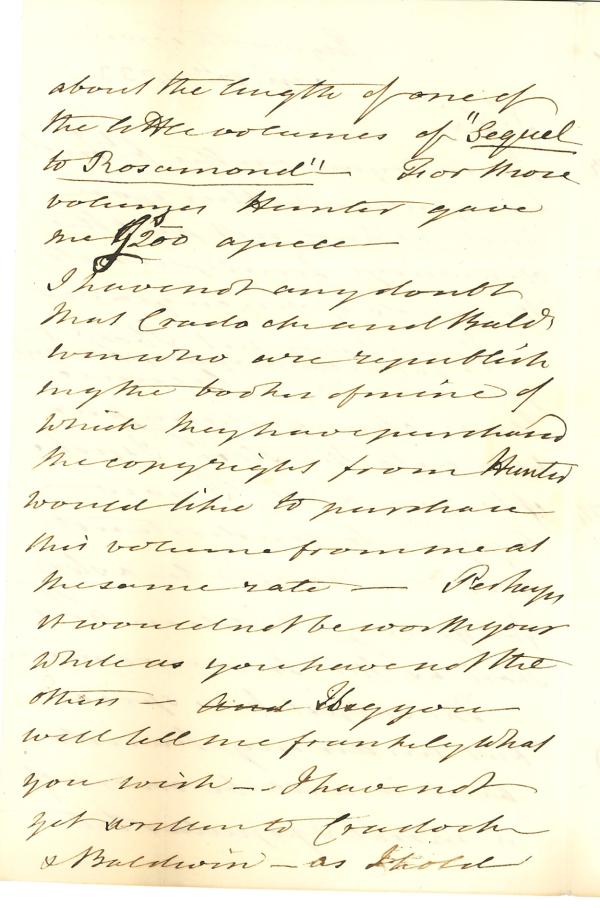 about the length of one of
the little volumes of "Sequel
to Rosamond" For those
volumes Hunter gave
me £200 apiece —
I have not any doubt
that Cradock and Bald
win who are republish
ing the books of mine of
which they have purchased
the copyright from Hunter
would like to purchase
this volume from me at
the same rate — Perhaps
it would not be worth your
while as you have not the
others — and I beg you
will tell me frankly what
you wish — I have not
yet written to Cradock
& Baldwin — as I hold